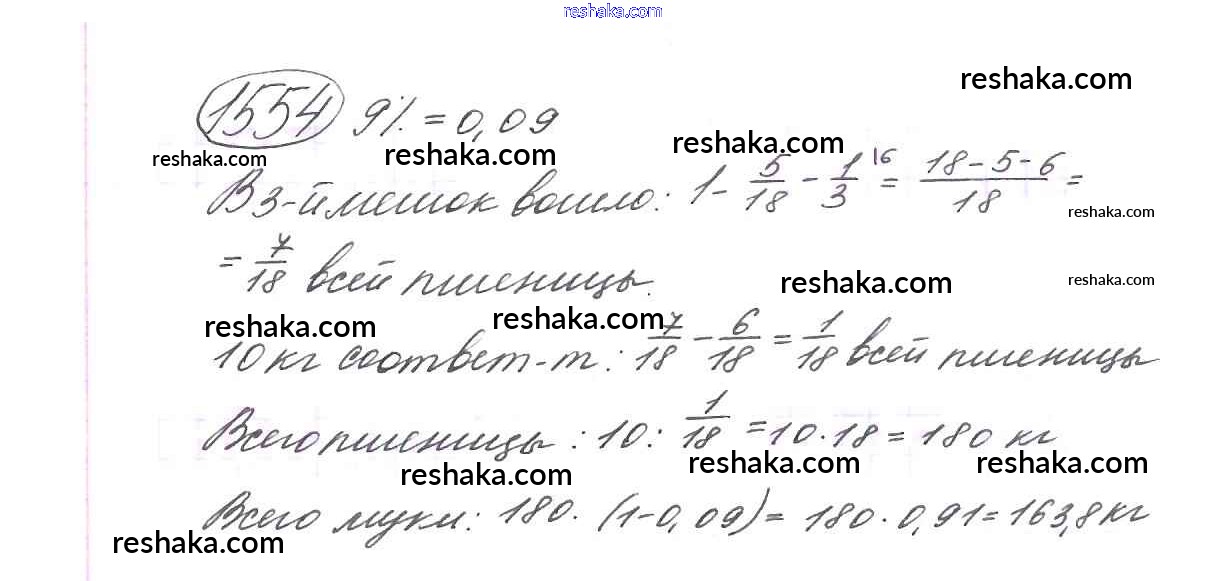 reshaka.com
reshaka.com
1554 9% = 0,09
reshaka.com reshaka.com reshaka.com
В 3-й мешок вошло: 1 - 5/18 - 1/3 |6 = (18-5-6)/18 =
reshaka.com
= 7/18 всей пшеницы.
reshaka.com reshaka.com
reshaka.com reshaka.com
10 кг соответ-т: 7/18 - 6/18 = 1/18 всей пшеницы
Всего пшеницы: 10 : 1/18 = 10·18 = 180 кг
reshaka.com reshaka.com reshaka.com
Всего муки: 180·(1-0,09) = 180·0,91 = 163,8 кг
reshaka.com